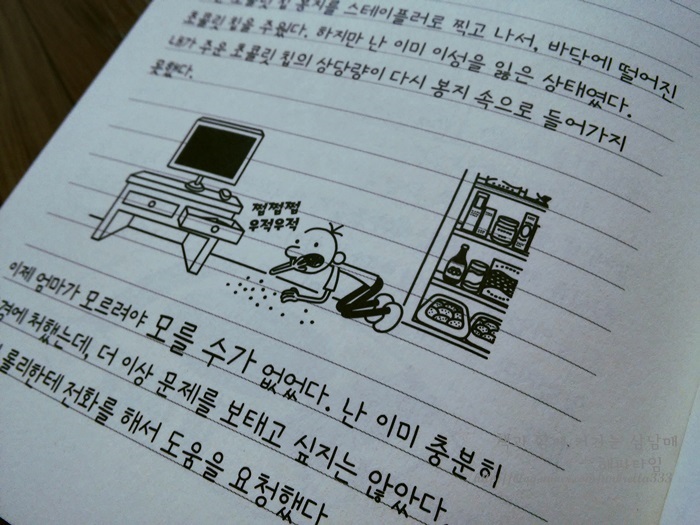 초콜릿 칩 봉지를 스테이플러로 찍고 나서, 바닥에 떨어진
초콜릿 칩을 주웠다. 하지만 난 이미 이성을 잃은 상태였다.
내가 주운 초콜릿 칩의 상당량이 다시 봉지 속으로 들어가지
못했다.
쩝쩝쩝
우적우적
이제 엄마가 모르려야 모를 수가 없었다. 난 이미 충분히
처했는데, 더 이상 문제를 보태고 싶지는 않았다.
롤리한테 전화를 해서 도움을 요청했다.